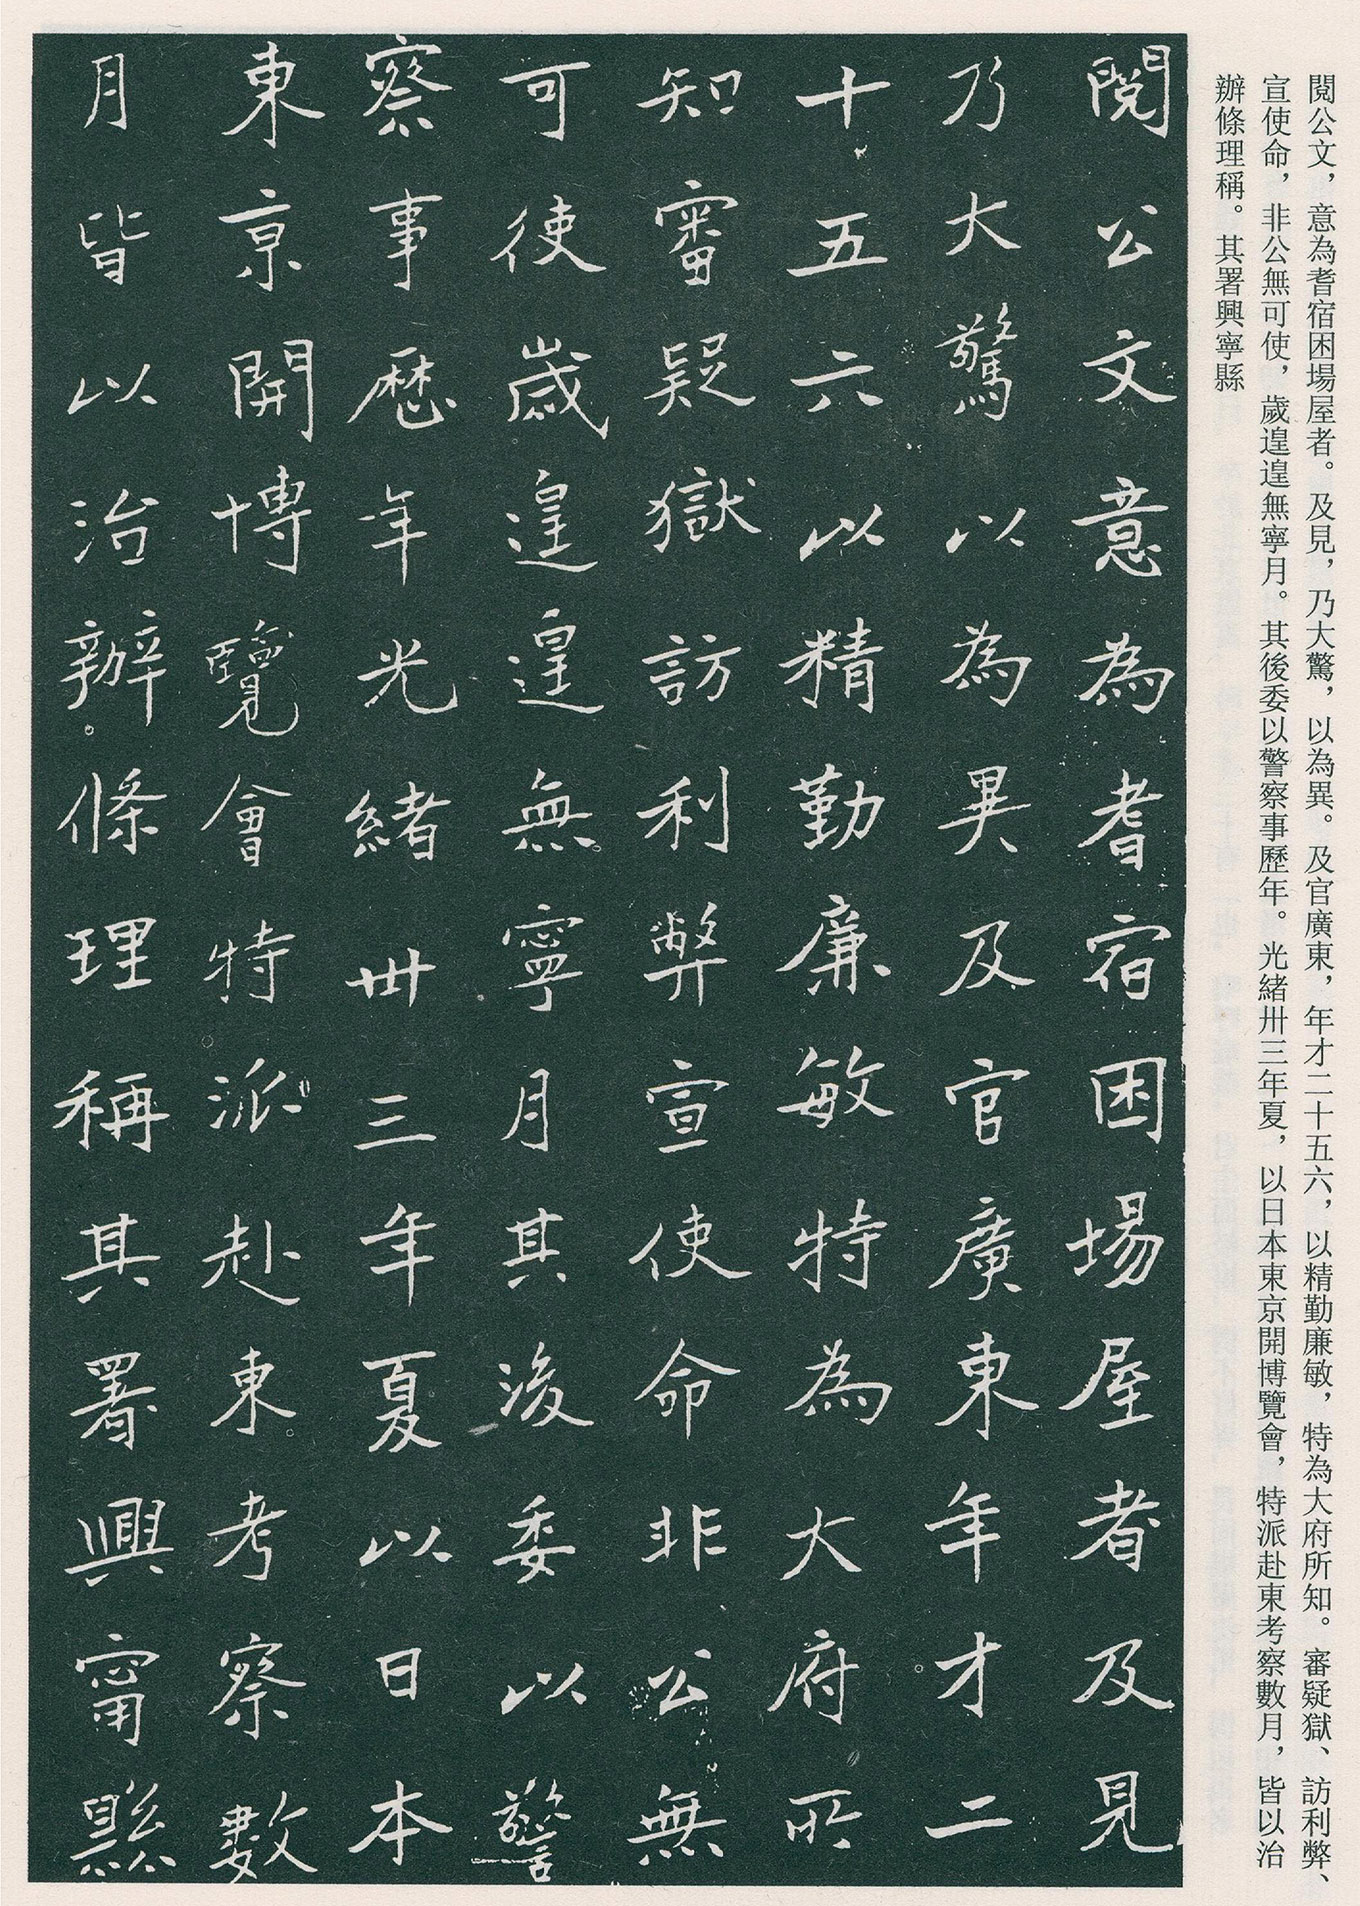 閱公文，意為耆宿困場屋者。及見，乃大驚，以為異。及官廣東，年才二十五六，以精勤廉敏，特為大府所知。審疑獄、訪利弊、
宣使命，非公無可使，歲遑遑無寧月。其後委以警察事歷年。光緒卅三年夏，以日本東京開博覽會，特派赴東考察數月，皆以治
辦條理稱。其署興寧縣
閱公文意為耆宿困場屋者及見
乃大驚以為異及官廣東年才二
十五六以精勤廉敏特為大府所
知審疑獄訪利弊宣使命非公無
可使歲遑遑無寧月其後委以警
察事歷年光緒卅三年夏以日本
東京開博覽會特派赴東考察數
月皆以治辦條理稱其署興甯縣